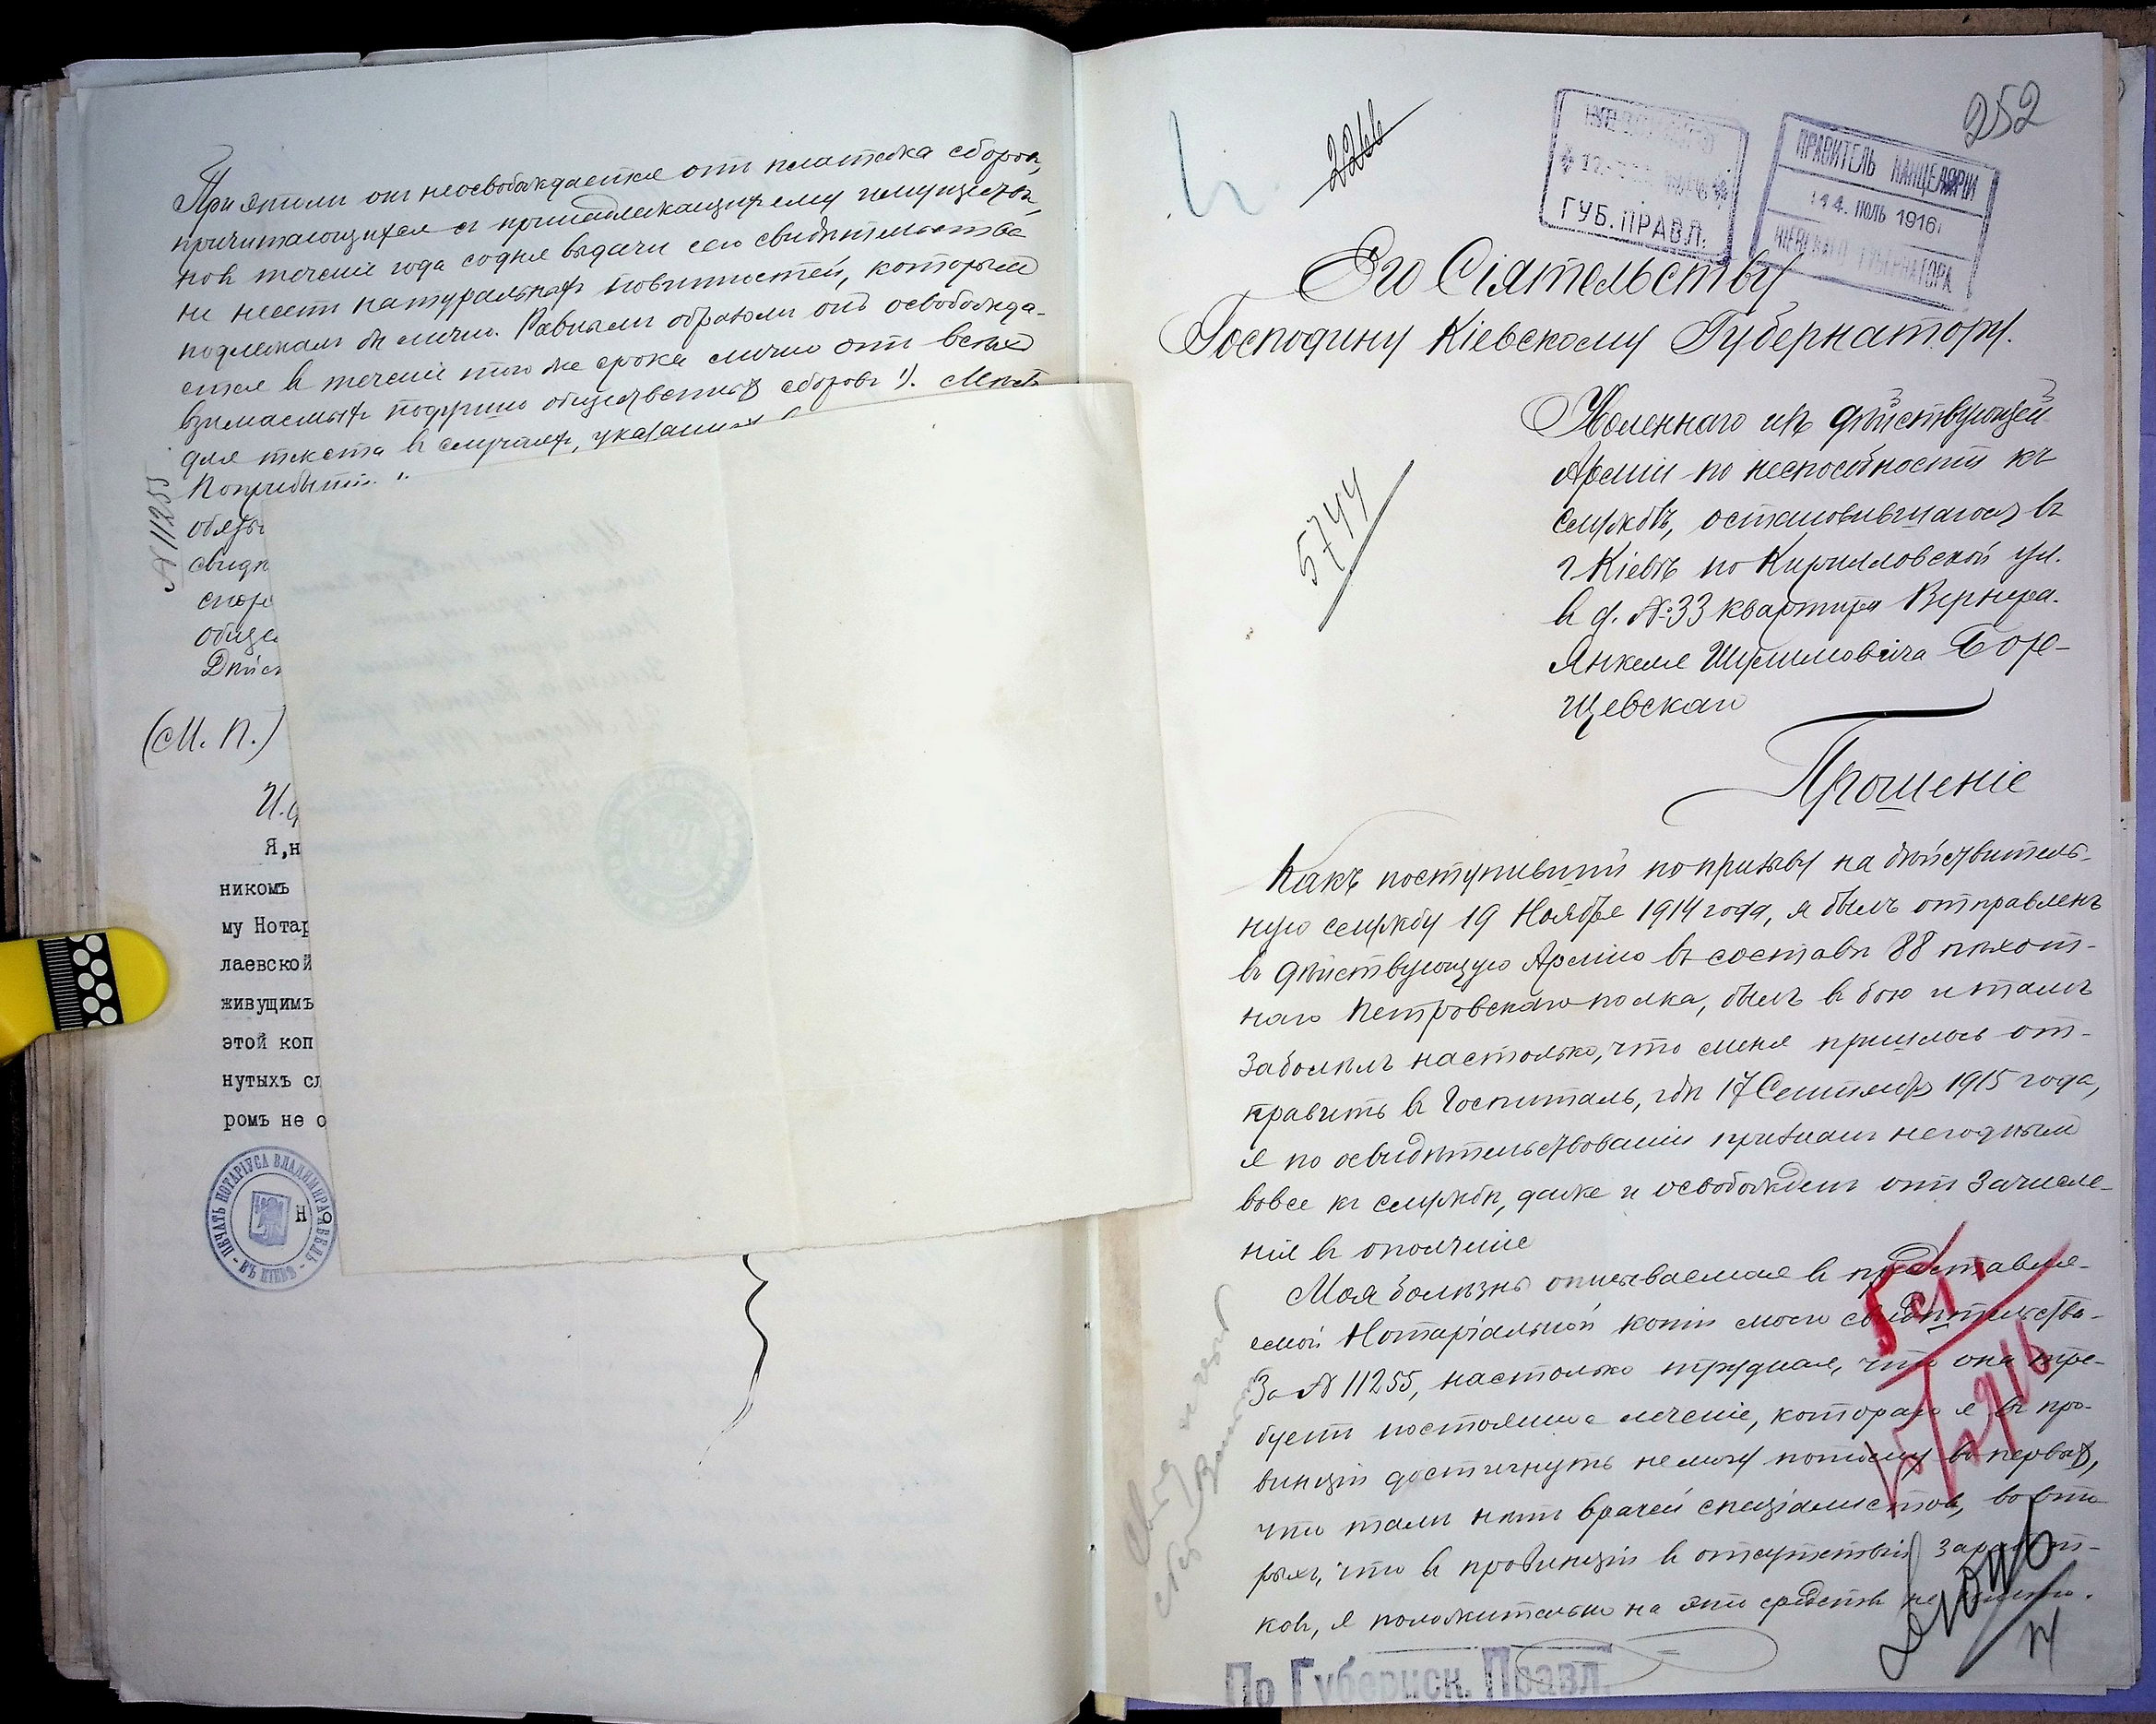 При этомъ онъ неосвобождается отъ платежа сборовъ,
причитающихся съ принадлежащихъ ему имуществъ,
но въ теченіе года со дня выдачи сего свидѣтельства
не несетъ натуральныхъ повинностей, которымъ
подлежалъ бы лично. Равнымъ образомъ онъ освобожда-
ется въ теченіе того же срока лично отъ всѣхъ
взимаемыхъ подушно общественныхъ сборовъ 1). Мѣсто
для текста въ случаяхъ, указанныхъ въ
По прибытіи
обяз
свидѣ
общес
Дѣйс
№ 11255
(М. П.)
И.д
Я,н
никомъ
му Нотар
лаевской
живущимъ
этой коп
нутыхъ сл
ромъ не о
Но
ПЕЧАТЬ НОТАРІУСА ВЛАДИМИРА
ВЪ КІЕВѢ
252
2266
ГУБ. ПРАВЛ.
ПРАВИТЕЛЬ КАНЦЕЛЯРІИ
14. ІЮЛЬ 1916
КІЕВСКАГО ГУБЕРНАТОРА
Его Сіятельству
Господину Кіевскому Губернатору.
5744
Уволеннаго изъ дѣйствующей
Арміи по неспособности къ
службѣ, остановившагося въ
г. Кіевѣ по Кирилловской ул.
въ д. № 33 квартира Вернера.
Янкеля Шулимовича Бор-
щевскаго
Прошеніе
Какъ поступившій по призыву на дѣйствитель-
ную службу 19 Ноября 1914 года, я былъ отправленъ
въ дѣйствующую Армію въ составъ 88 пѣхот-
наго Петровскаго полка, былъ въ бою и тамъ
заболѣлъ настолько, что меня пришлось от-
править въ Госпиталь, гдѣ 17 Сентября 1915 года,
я по освидѣтельствованіи признанъ негоднымъ
вовсе къ службѣ, даже и освобожденъ отъ зачисле-
нія въ ополченіе
Моя болѣзнь описываемая въ представля-
емой Нотаріальной копіи моего свидѣтельства
за № 11255, настолько трудная, что она тре-
буетъ постоянное леченіе, котораго я въ про-
винціи достигнуть не могу потому во первыхъ,
что тамъ нѣтъ врачей спеціалистовъ, во вто-
рыхъ, что въ провинціи въ отсутствіи заработ-
ковъ, я положительно на это средствъ не имѣю.
По Губернск. Правл.